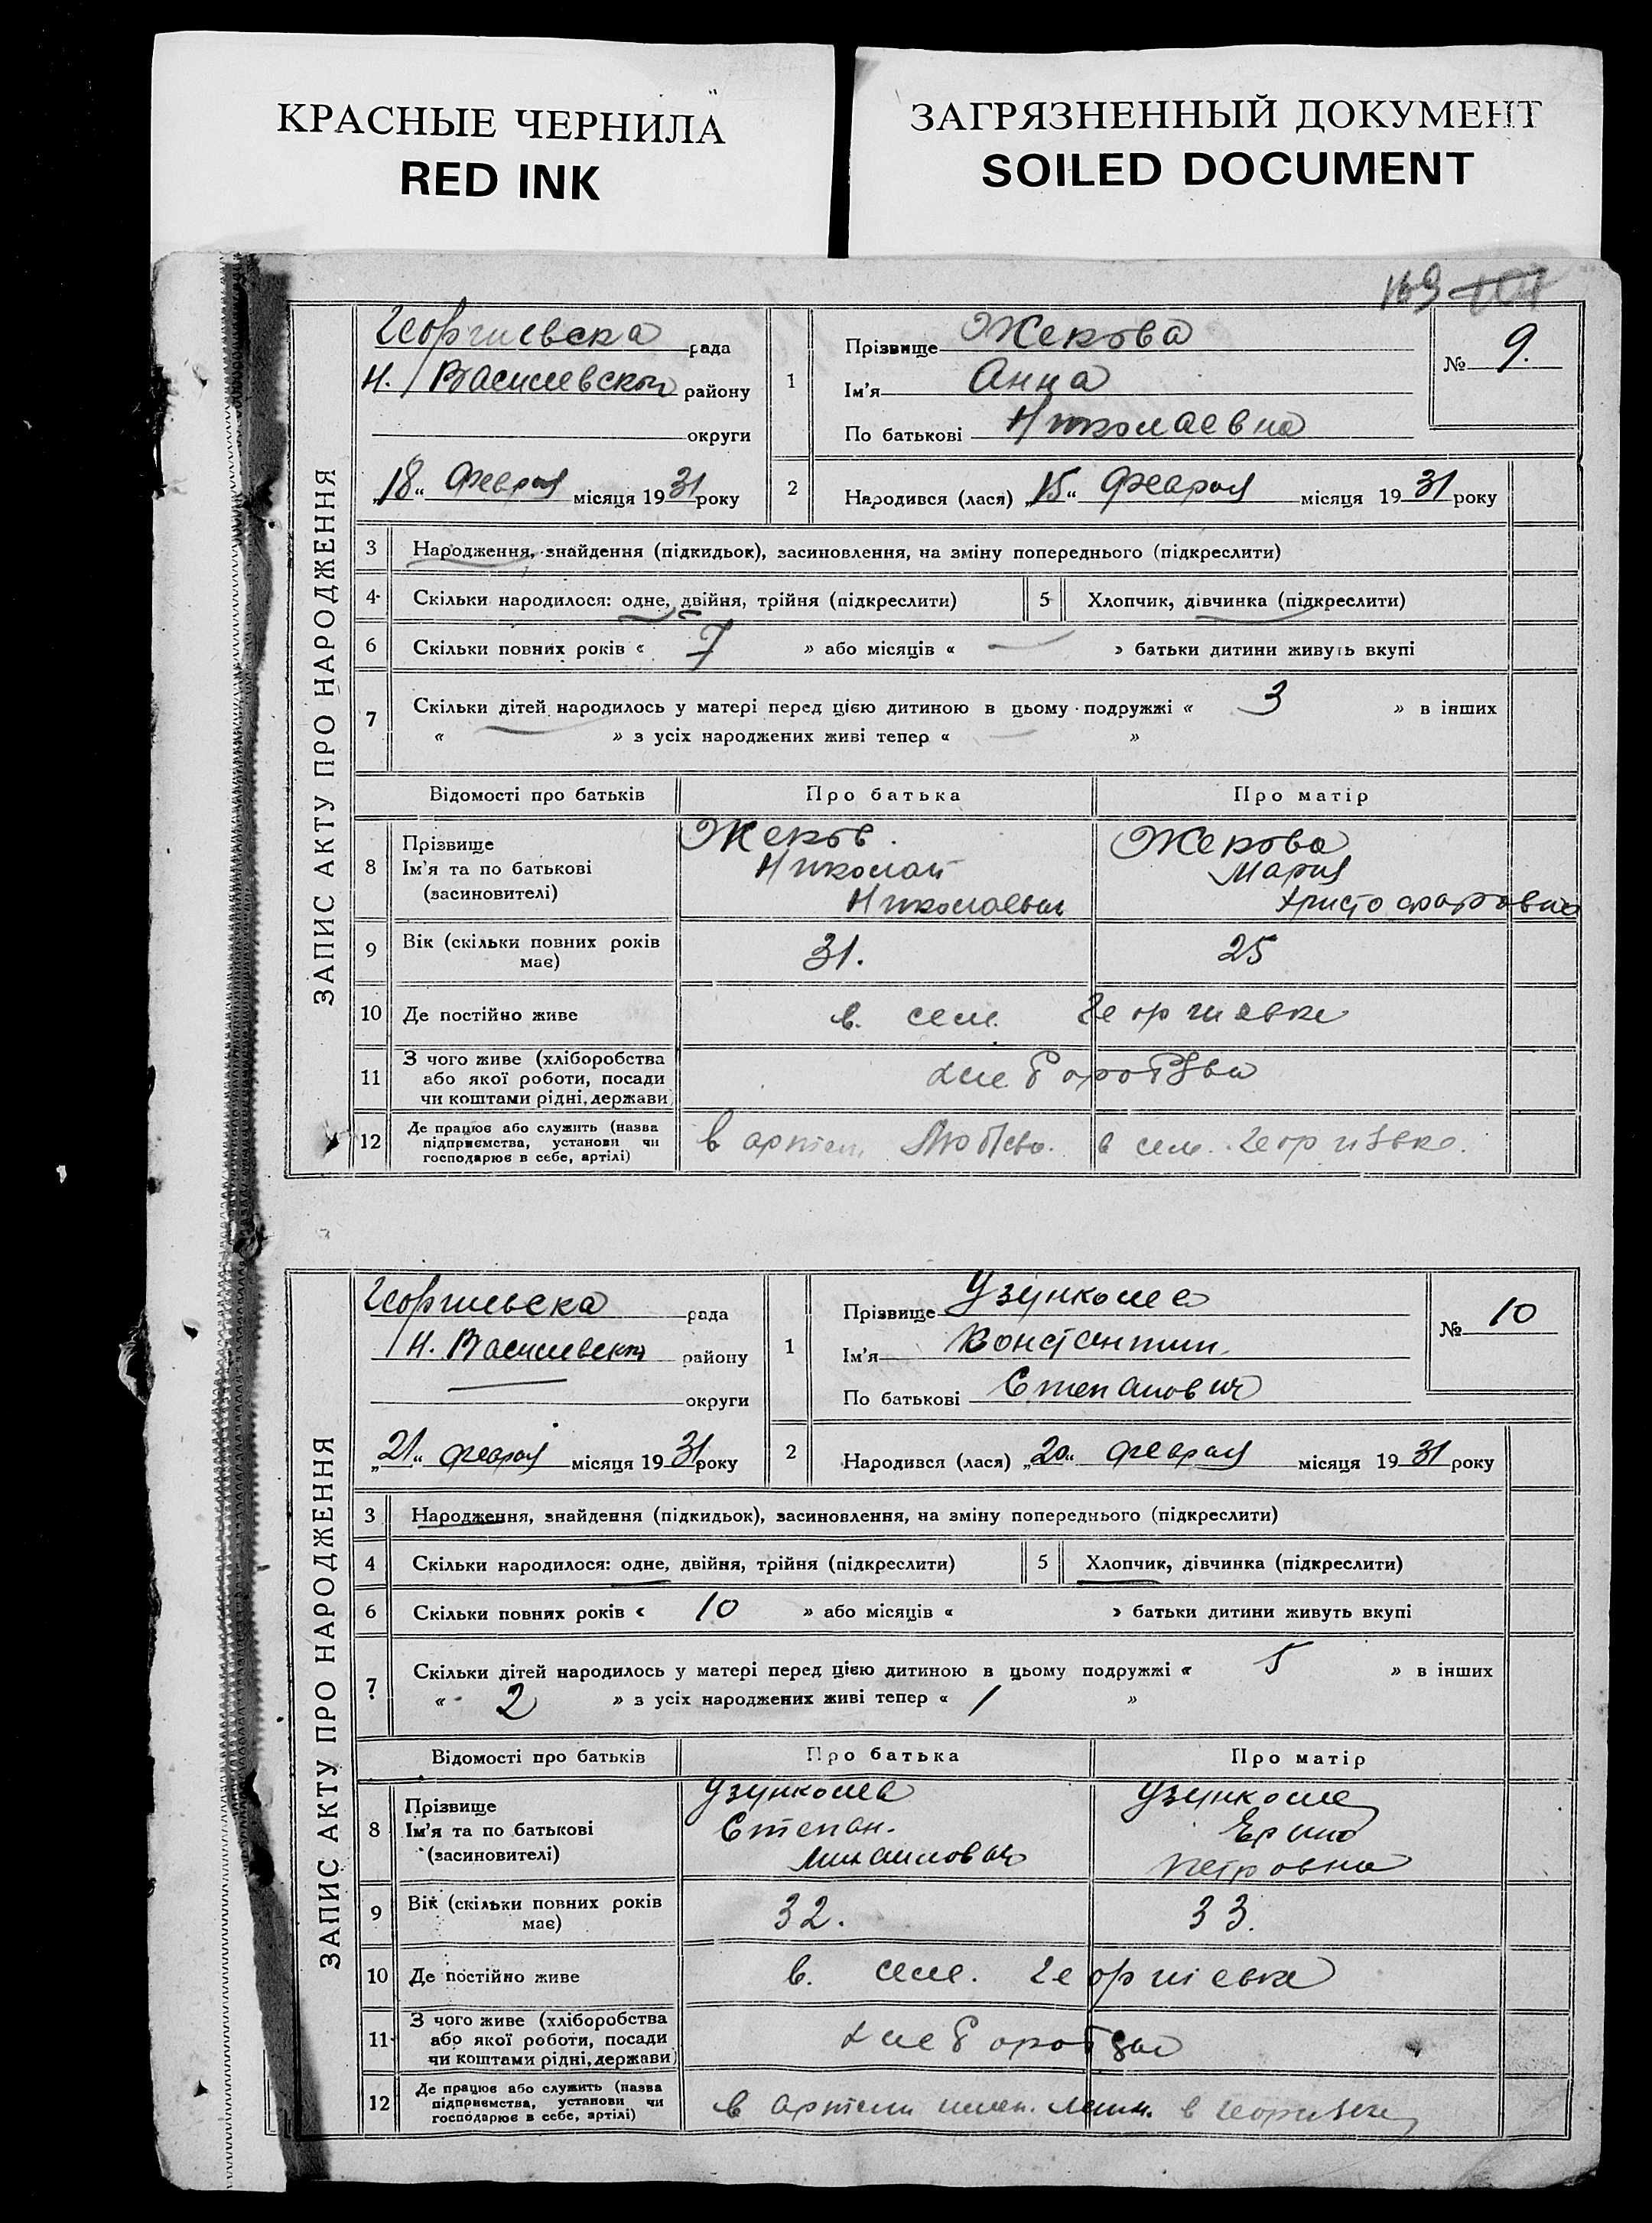 КРАСНЫЕ ЧЕРНИЛА
RED INK
ЗАГРЯЗНЕННЫЙ ДОКУМЕНТ
SOILED DOCUMENT
169
ЗАПИС АКТУ ПРО НАРОДЖЕННЯ
Георгиевска рада
Н. Василевской району
округи
„18“ Февраля місяця 1931 року
1 Прізвище Жекова
Ім'я Анна
По батькові Николаевна
№ 9.
2 Народився (лася) „15“ Февраля місяця 1931 року
3 Народження, знайдення (підкидьок), засиновлення, на зміну попереднього (підкреслити)
4 Скільки народилося: одне, двійня, трійня (підкреслити) 5 Хлопчик, дівчинка (підкреслити)
6 Скільки повних років « 7 » або місяців « — » батьки дитини живуть вкупі
7 Скільки дітей народилось у матері перед цією дитиною в цьому подружжі « 3 » в інших
« — » з усіх народжених живі тепер « — »
Відомості про батьків Про батька Про матір
8 Прізвище Жеков. Жекова
Ім'я та по батькові Николай Мария
(засиновителі) Николаевич Христофоровна
9 Вік (скільки повних років має) 31. 25
10 Де постійно живе в. селе. Георгиевке
11 З чого живе (хліборобства
або якої роботи, посади
чи коштами рідні, держави)
12 Де працює або служить (назва
підприємства, установи чи
господарює в себе, артілі)
в артели в селе.
ЗАПИС АКТУ ПРО НАРОДЖЕННЯ
Георгиевска рада
Н. Василевской району
округи
„21“ февраля місяця 1931 року
1 Прізвище Узунколев
Ім'я Константин.
По батькові Степанович
№ 10
2 Народився (лася) „20“ февраля місяця 1931 року
3 Народження, знайдення (підкидьок), засиновлення, на зміну попереднього (підкреслити)
4 Скільки народилося: одне, двійня, трійня (підкреслити) 5 Хлопчик, дівчинка (підкреслити)
6 Скільки повних років « 10 » або місяців « » батьки дитини живуть вкупі
7 Скільки дітей народилось у матері перед цією дитиною в цьому подружжі « 5 » в інших
« 2 » з усіх народжених живі тепер « 1 »
Відомості про батьків Про батька Про матір
8 Прізвище Узунколев
Ім'я та по батькові Степан.
(засиновителі) Михаилович Петровна
9 Вік (скільки повних років має) 32. 33.
10 Де постійно живе в. селе. Георгиевке
11 З чого живе (хліборобства
або якої роботи, посади
чи коштами рідні, держави)
12 Де працює або служить (назва
підприємства, установи чи
господарює в себе, артілі)
в артели имен. Ленин. в